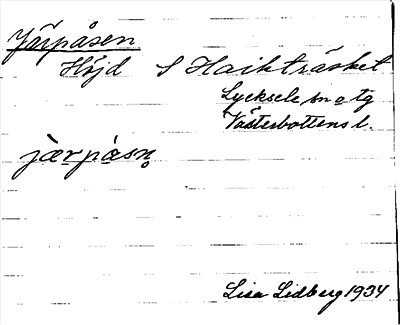 Järpåsen
Höjd S Haikträsket
Lycksele sn o tg
Västerbottens l.
jærpåsn̥
Lisa Lidberg 1934